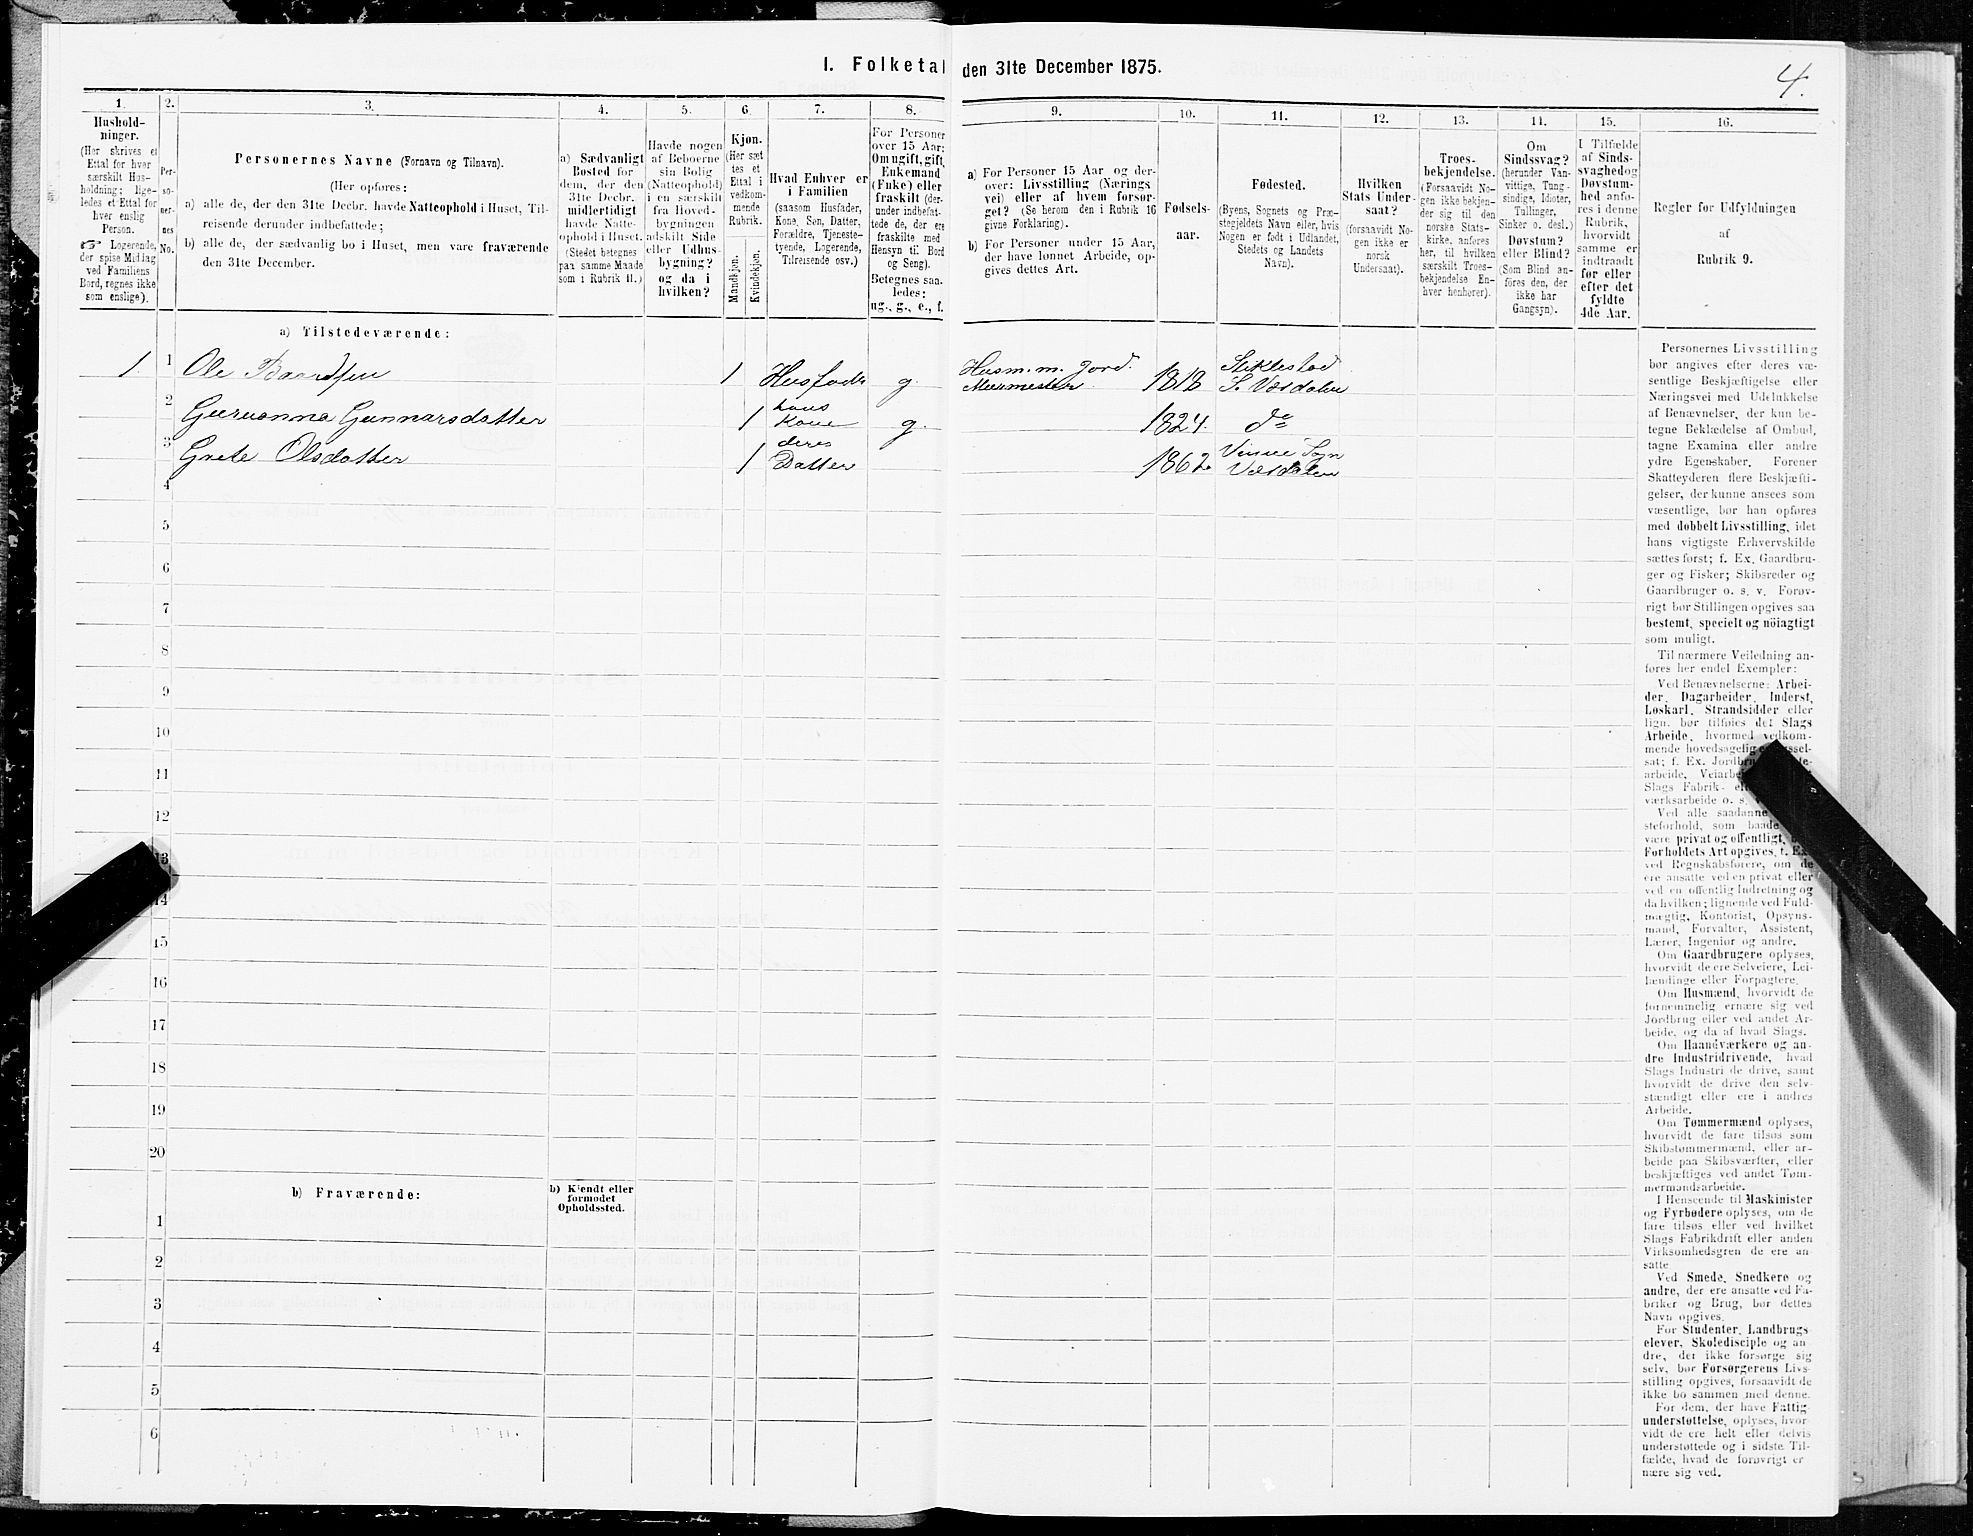 I. Folketal den 31te December 1875.
4.
1.
Hushold-
ninger.
(Her skrives et
Ettal for hver
særskilt Hus-
holdning; lige-
ledes et Ettal for
hver enslig
Person.
☞ Logerende,
der spise Middag
ved Familiens
Bord, regnes ikke
som enslige).
2.
Per-
so-
ner-
nes
No.
3.
Personernes Navne (Fornavn og Tilnavn).
(Her opføres:
a) alle de, der den 31te Decbr. havde Natteophold i Huset, Til-
reisende derunder indbefattede;
b) alle de, der sædvanlig bo i Huset, men vare fraværende
den 31te December.
4.
a) Sædvanligt
Bosted for
dem, der den
31te Decbr.
midlertidigt
havde Natte-
ophold i Huset.
(Stedet betegnes
paa samme Maade
som i Rubrik 11.)
5.
Havde nogen
af Beboerne
sin Bolig
(Natteophold)
i en særskilt
fra Hoved-
bygningen
adskilt Side
eller Udhus-
bygning?
og da i
hvilken?
6.
Kjøn.
(Her sæt
tes et
Ettal i
vedkom-
mende
Rubrik.
Mandkjøn.
Kvindekjøn.
7.
Hvad Enhver er
i Familien
(saasom Husfader,
Kone, Søn, Datter,
Forældre, Tjeneste-
tyende, Logerende,
Tilreisende osv.)
8.
For Personer
over 15 Aar:
Om ugift, gift,
Enkemand
(Enke) eller
fraskilt (der-
under indbefat-
tede de, der ere
fraskilte med
Hensyn til Bord
og Seng).
Betegnes saa-
ledes:
ug., g., e., f.
9.
a) For Personer 15 Aar og der-
over: Livsstilling (Nærings
vei) eller af hvem forsør-
get? (Se herom den i Rubrik 16
givne Forklaring).
b) For Personer under 15 Aar,
der have lønnet Arbeide, op-
gives dettes Art.
10.
Fødsels-
aar.
11.
Fødested.
(Byens, Sognets og Præ-
stegjeldets Navn eller, hvis
Nogen er født i Udlandet,
Stedets og Landets
Navn).
12.
Hvilken
Stats Under-
saat?
(forsaavidt No-
gen ikke er
norsk
Undersaat).
13.
Troes-
bekjendelse.
(Forsaavidt No-
gen ikke bekjen-
der sig til den
norske Stats-
kirke, anføres
her, til hvilken
særskilt Troes-
bekjendelse En-
hver henhører).
14.
Om
Sindssvag?
(herunder Van-
vittige, Tung-
sindige, Idioter,
Tullinger,
Sinker o. desl.)
Døvstum?
eller Blind?
(Som Blind an-
føres den, der
ikke har
Gangsyn).
15.
I Tilfælde
af Sinds-
svaghed og
Døvstum-
hed anfø-
res i denne
Rubrik,
hvorvidt
samme er
indtraadt
før eller
efter det
fyldte
4de Aar.
16.
Regler for Udfyldningen
af
Rubrik 9.
a) Tilstedeværende:
1 1 Ole Baardsen 1 Husfader g. Husm. m. Jord. Muurmester 1818 Stiklestad S. Værdalen
2 Guruanna Gunnarsdatter 1 hans Kone g. 1824. do
3 Grete Olsdatter 1 deres Datter 1862. Vinne Sogn Værdalen
4
5
6
7
8
9
10
11
12
13
14
15
16
17
18
19
20
b) Fraværende:
b) Kjendt eller
formodet
Opholdssted.
1
2
3
4
5
6
Personernes Livsstilling
bør angives efter deres væ-
sentlige Beskjæftigelse eller
Næringsvei med Udelukkelse
af Benævnelser, der kun be-
tegne Beklædelse af Ombud,
tagne Examina eller andre
ydre Egenskaber. Forener
Skatteyderen flere Beskjæfti-
gelser, der kunne ansees som
væsentlige, bør han opføres
med dobbelt Livsstilling, idet
hans vigtigste Erhvervskilde
sættes først; f. Ex. Gaardbru-
ger og Fisker; Skibsreder og
Gaardbruger o. s. v. Forøv-
rigt bør Stillingen opgives saa
bestemt, specielt og nöiagtigt
som muligt.
Til nærmere Veiledning an-
føres her endel Exempler:
Ved Benævnelserne: Arbei-
der, Dagarbeider, Inderst,
Løskarl, Strandsidder eller
lign. bør tilføies det Slags
Arbeide, hvormed vedkom-
mende hovedsagelig
sat; f. Ex.
arbeide,
Slags Fabrik-
værksarbeide o. s.
Ved alle saadanne
steforhold, som baade
være privat og offentligt,
Forholdets Art opgives, f. Ex.
ved Regnskabsførere, om de
ere ansatte ved en privat eller
ved en offentlig Indretning og
da hvilken; lignende ved Fuld-
mægtig, Kontorist, Opsyns-
mand, Forvalter, Assistent,
Lærer, Ingeniør og andre.
Om Gaardbrugere oplyses,
hvorvidt de ere Selveiere, Lei-
lændinge eller Forpagtere.
Om Husmænd, hvorvidt de
fornemmelig ernære sig ved
Jordbrug eller ved andet Ar-
beide, og da af hvad Slags.
Om Haandværkere og an-
dre Industridrivende, hvad
Slags Industri de drive, samt
hvorvidt de drive den selv-
stændigt eller ere i andres
Arbeide.
Om Tømmermænd oplyses,
hvorvidt de fare tilsøs som
Skibstømmermænd, eller ar-
beide paa Skibsværfter, eller
beskjæftiges ved andet Tøm-
mermandsarbeide.
I Henseende til Maskinister
og Fyrbødere oplyses, om de
fare tilsøs eller ved hvilket
Slags Fabrikdrift eller anden
Virksomhedsgren de ere an-
satte
Ved Smede, Snedkere og
andre, der ere ansatte ved Fa-
briker og Brug, bør dettes
Navn opgives.
For Studenter, Landbrugs-
elever, Skoledisciple og an-
dre, der ikke forsørge sig
selv, bør Forsørgerens Livs-
stilling opgives, forsaavidt de
ikke bo sammen med denne.
For dem, der have Fattig-
understøttelse, oplyses, hvor-
vidt de ere helt eller delvis
understøttede og i sidste Til-
fælde, hvad de forøvrigt er-
nære sig ved.